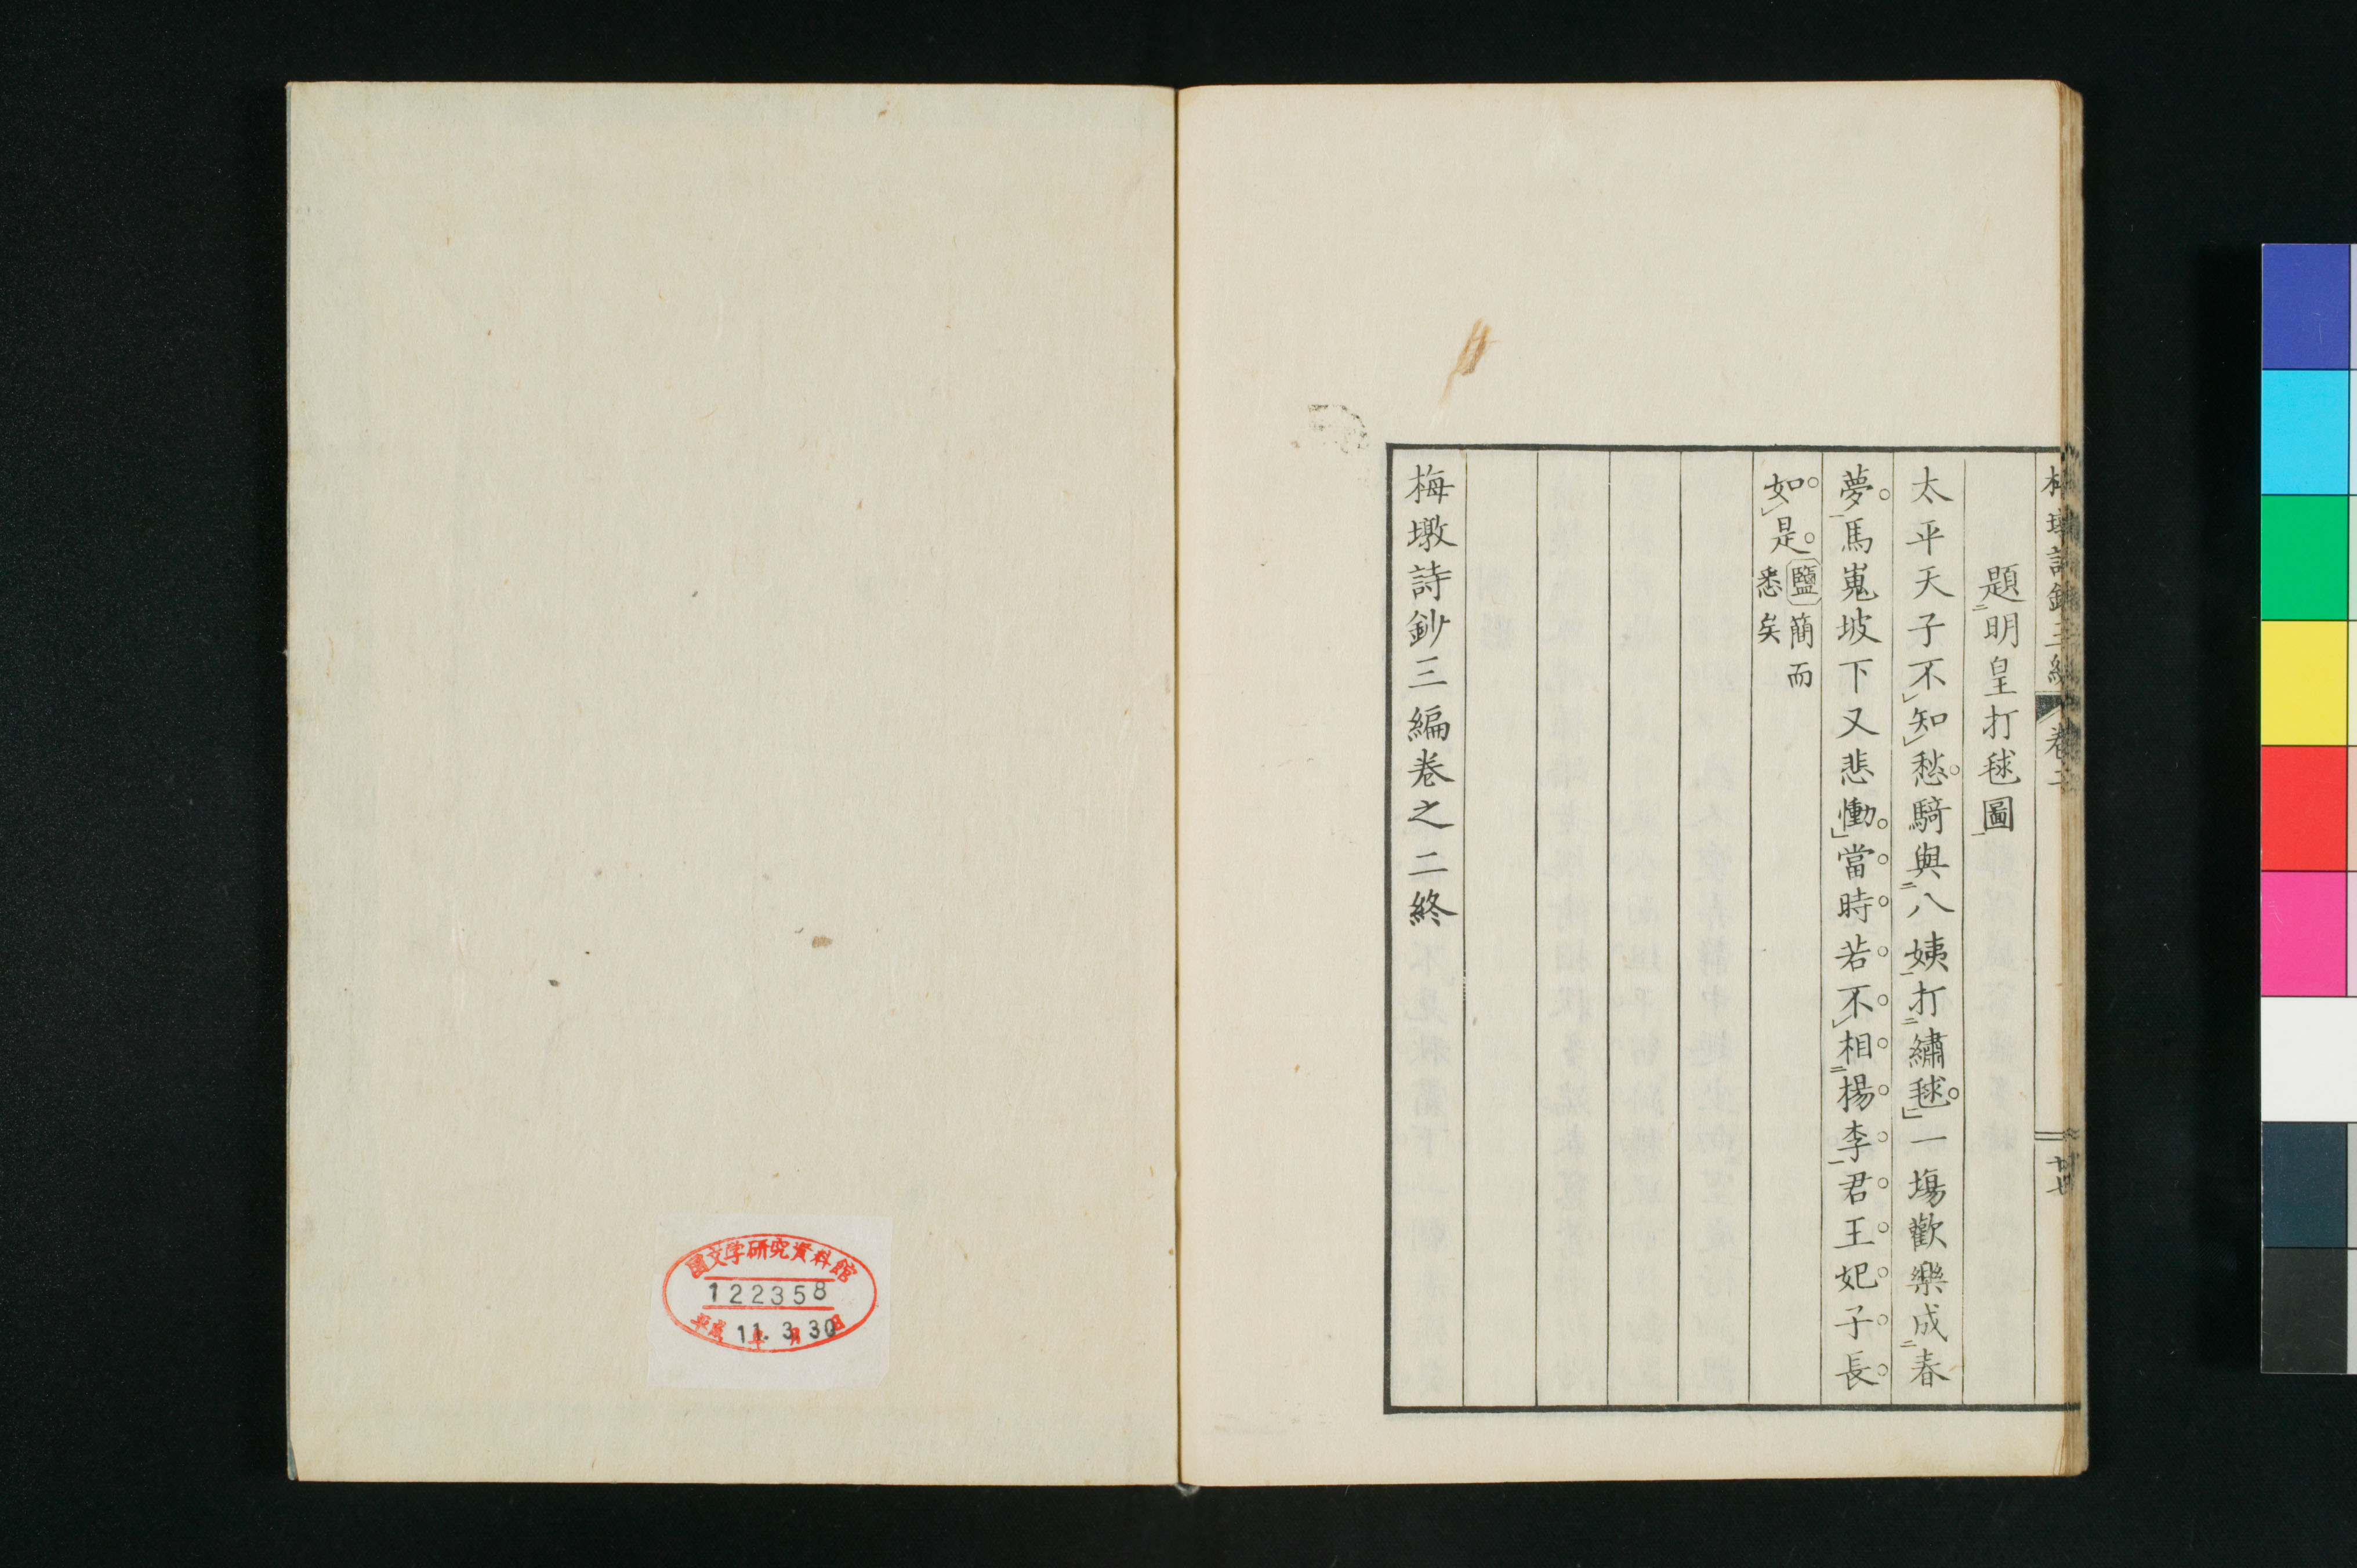 梅墩詩鈔三編 卷二 廿七
題明皇打毬圖
太平天子不知愁騎與八姨打繡毬一場歡樂成春
夢馬嵬坡下又悲慟當時若不相楊李君王妃子長
如是鹽簡而
悉矣
梅墩詩鈔三編卷之二終
國文学研究資料館
122358
平成 11年 3月 30日